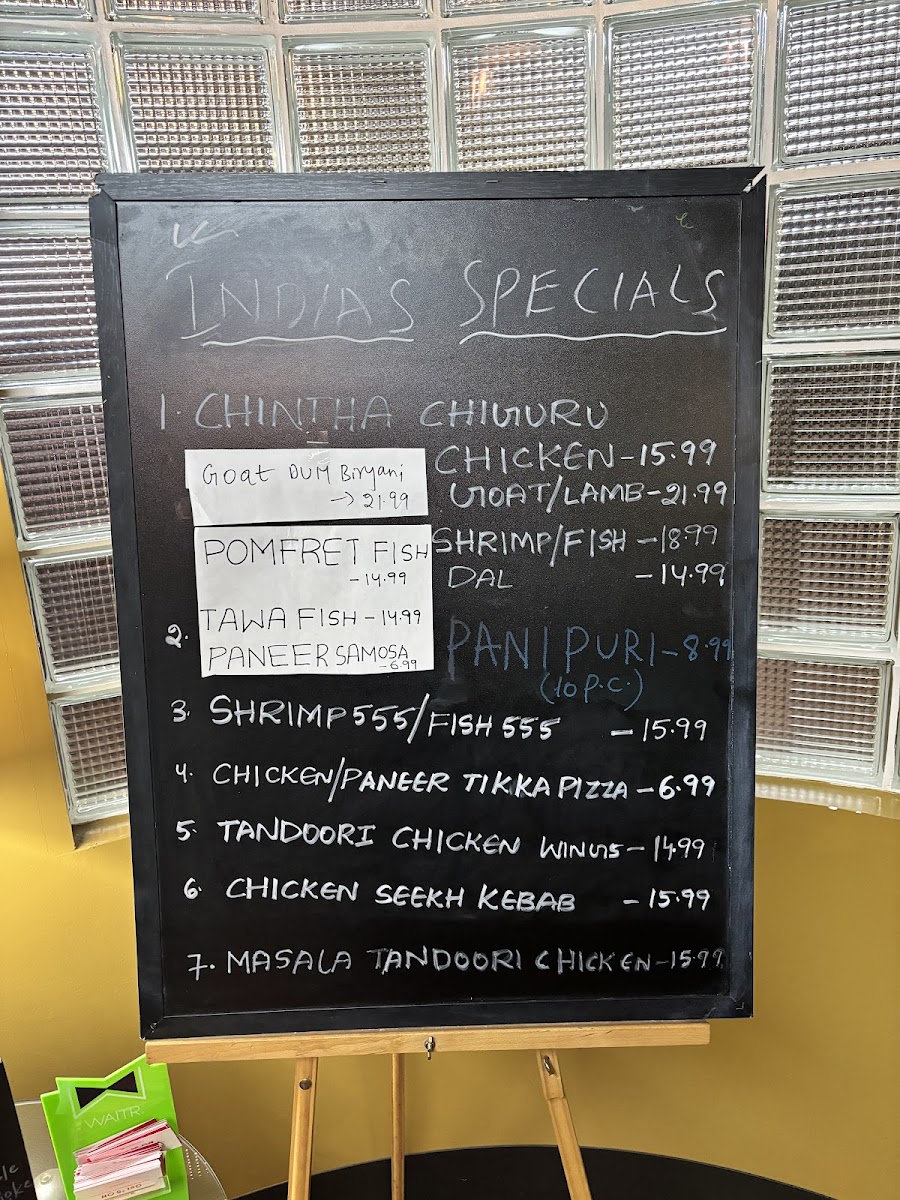 INDIA'S SPECIALS
1. CHINTHA CHIGURU
CHICKEN-15.99
GOAT/LAMB-21.99
SHRIMP/FISH -18.99
DAL -14.99
Goat DUM Biryani
→ 21.99
POMFRET FISH
-14.99
TAWA FISH-14.99
PANEER SAMOSA
-6.99
2. PANI PURI-8.99
(10 P.C.)
3. SHRIMP 555/FISH 555 -15.99
4. CHICKEN/PANEER TIKKA PIZZA-6.99
5. TANDOORI CHICKEN WINGS-14.99
6. CHICKEN SEEKH KEBAB -15.99
7. MASALA TANDOORI CHICKEN-15.99
WAITR